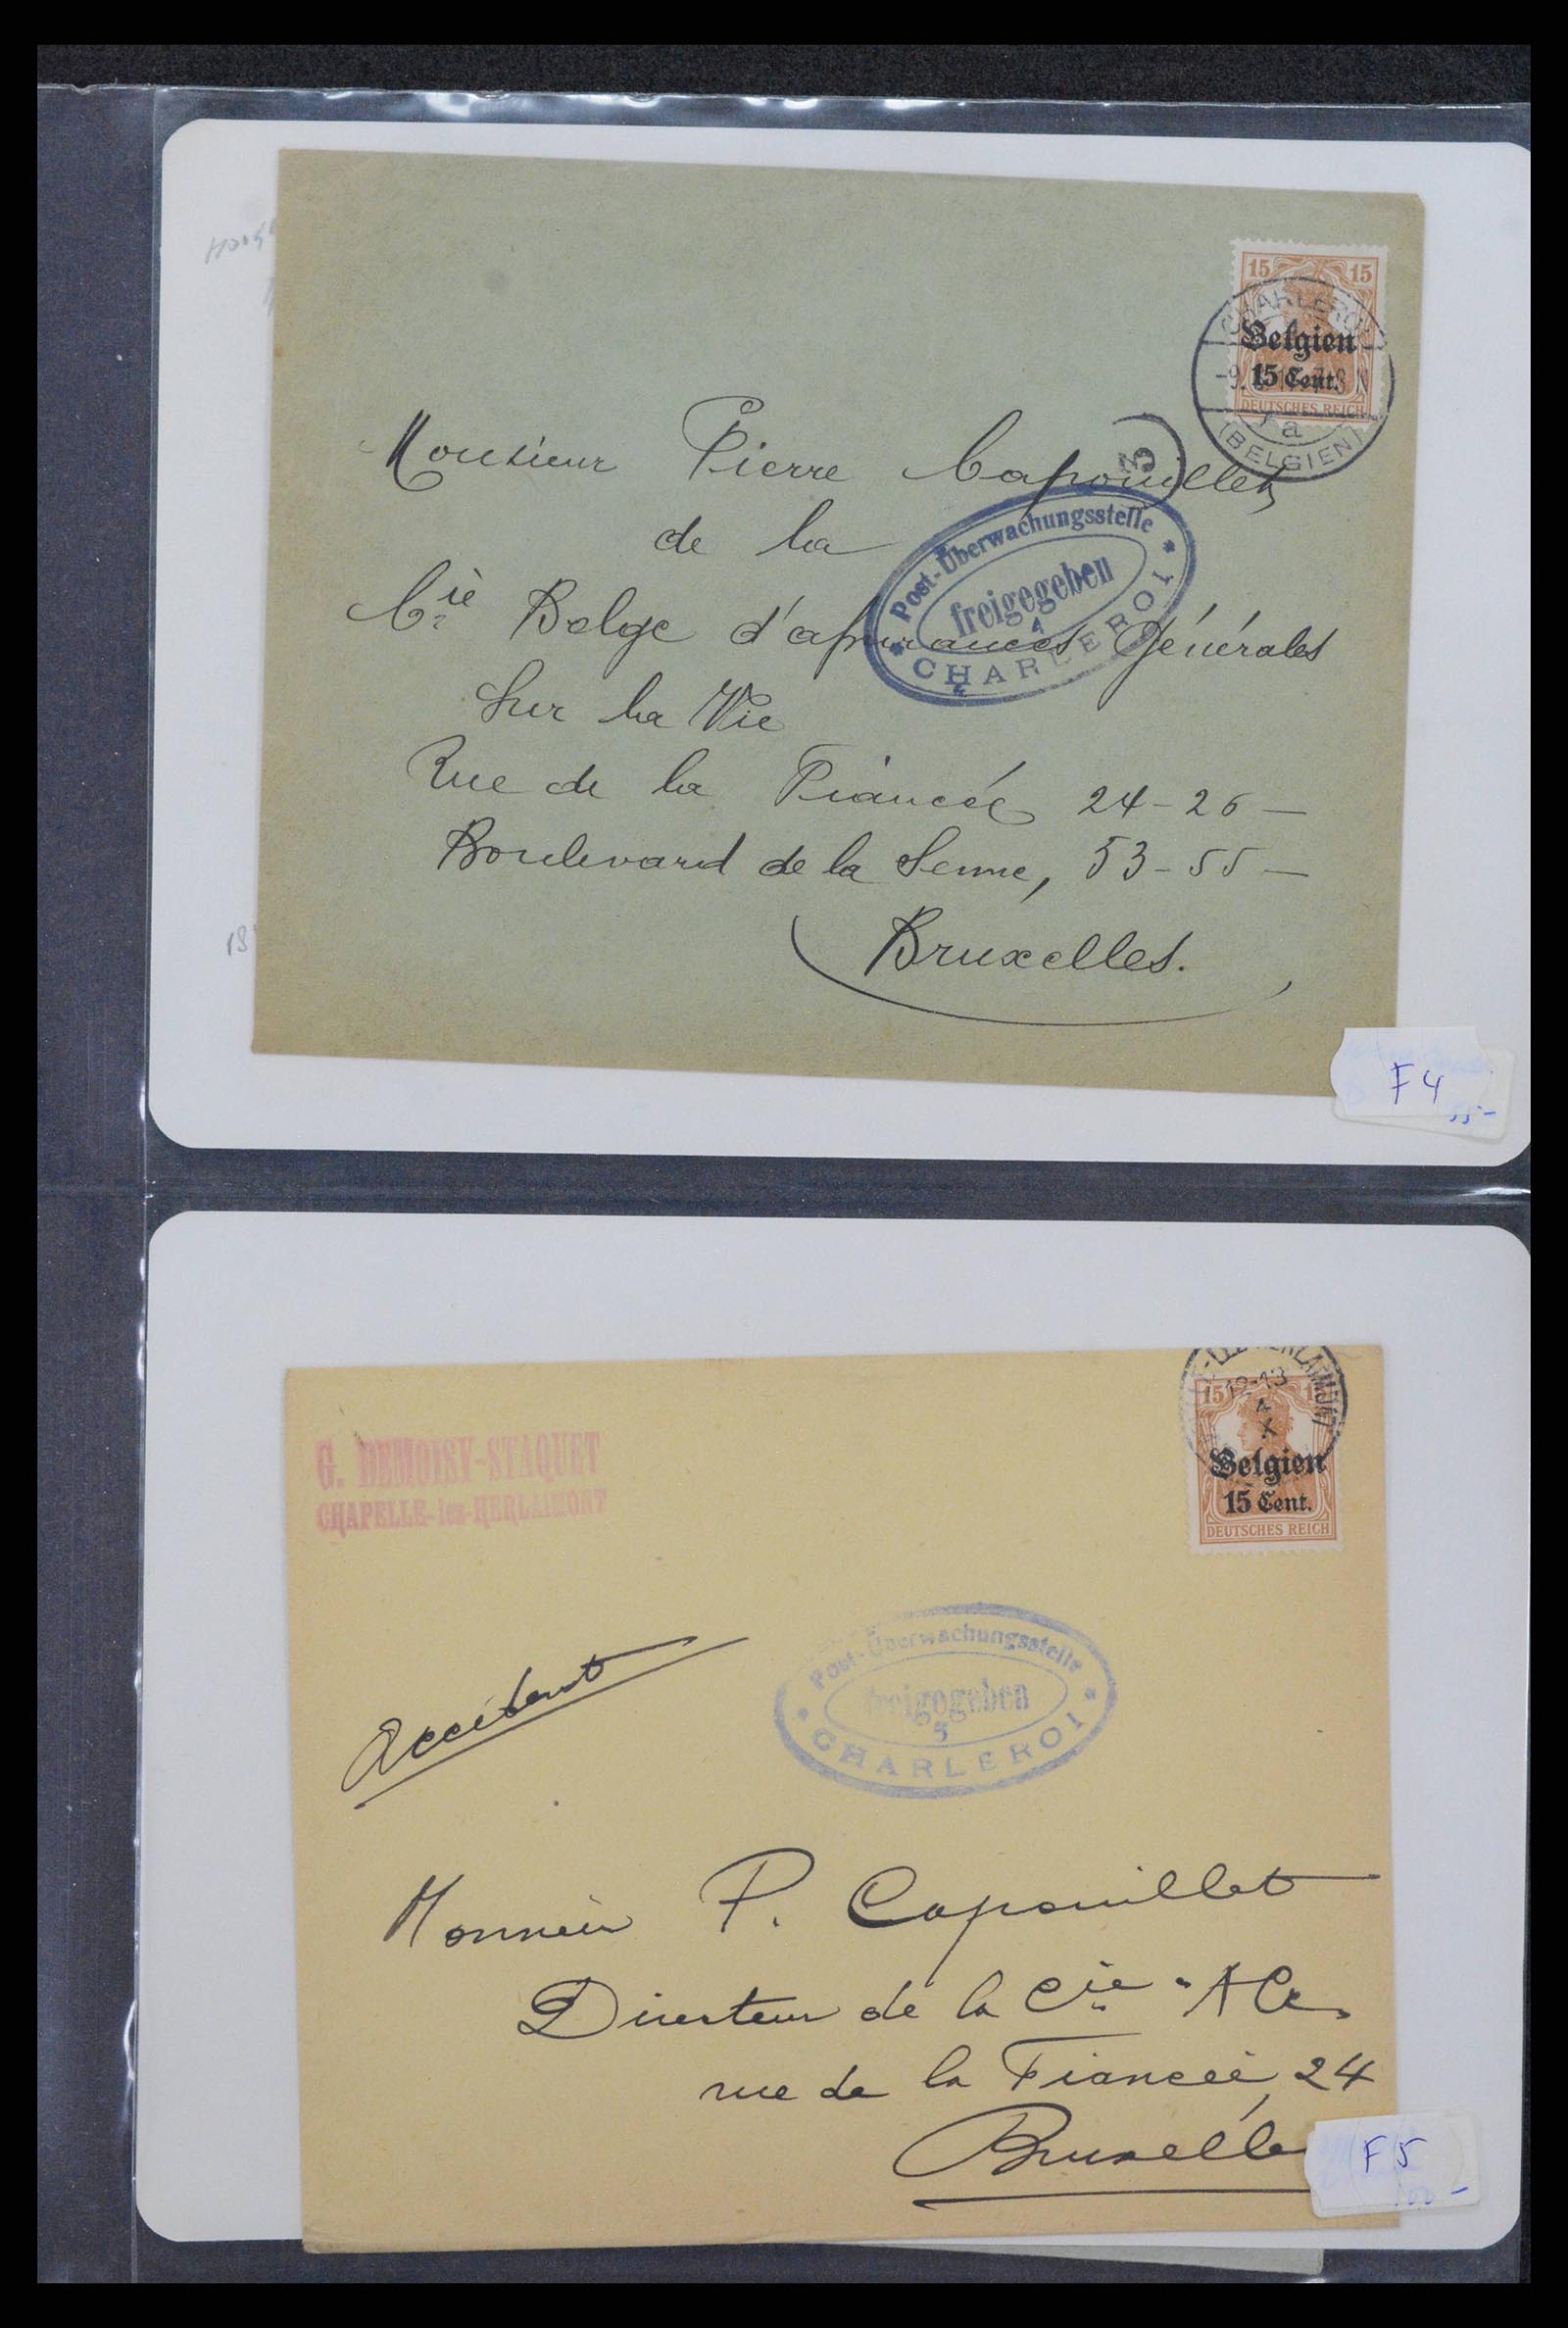 15 15
CHARLEROI
Belgien
15 Cent.
DEUTSCHES REICH
a
(BELGIEN)
3
Monsieur Pierre Capouillet
de la
Post-Überwachungsstelle
freigegeben
4
CHARLEROI
Cie Belge d'assurances Générales
Sur la Vie
Rue de la Fiancée 24-26 —
Boulevard de la Senne, 53-55 —
Bruxelles.
F4
55-
G. DEMOISY-STAQUET
CHAPELLE-lez-HERLAIMONT
12-13
4
X
15
Belgien
15 Cent.
DEUTSCHES REICH
Accident
Post-Überwachungsstelle
freigegeben
5
CHARLEROI
Monsieur P. Capouillet
Directeur de la Cie
rue de la Fiancée, 24
F5
100-